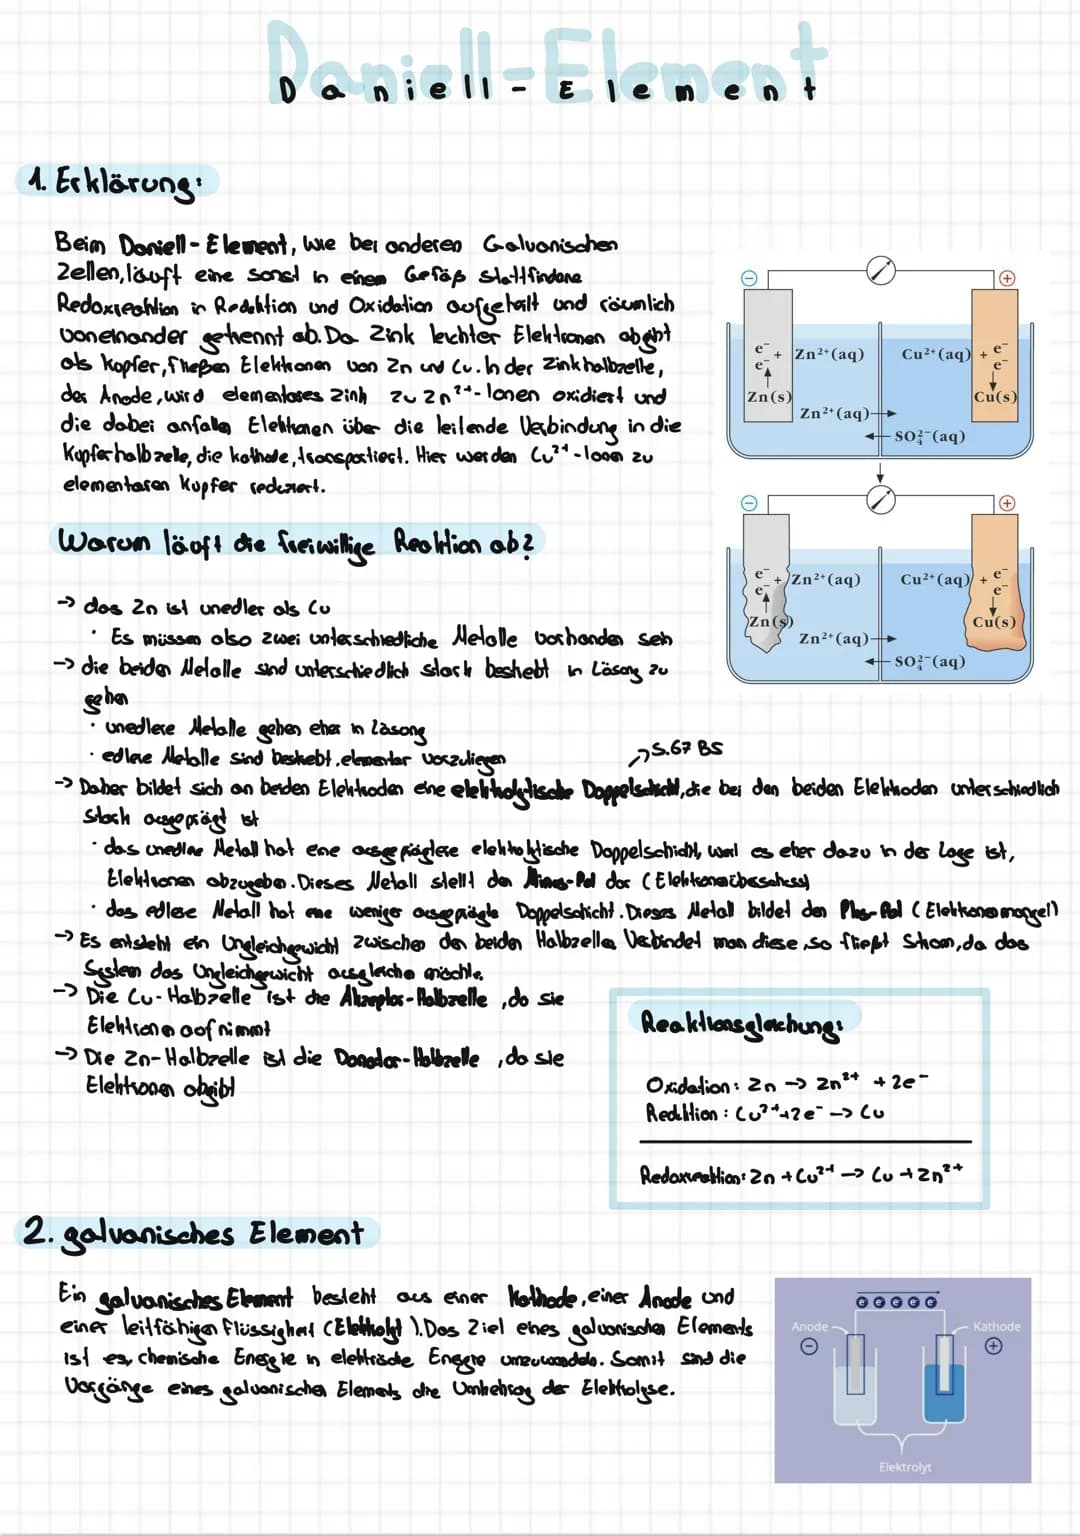 Daniell-Element
Daniell-Element
1. Erklärung:
Beim Daniell-Element, wie bei anderen Galvanischen
Zellen, läuft eine sonst in einem Gefäß stattfindene
Redoxreaktion in Reduktion und Oxidation aufgeteilt und räumlich
voneinander getrennt ab. Da Zink leichter Elektronen abgibt
als Kupfer, fließen Elektronen von Zn und Cu. In der Zinkhalbzelle,
der Anode, wird elementares Zink zu Zn²⁺-Ionen oxidiert und
die dabei anfallen Elektronen über die leitende Verbindung in die
Kupferhalbzelle, die Kathode, transportiert. Hier werden Cu²⁺-Ionen zu
elementaren Kupfer reduziert.
Warum läuft die freiwillige Reaktion ab?
→ das Zn ist unedler als Cu
· Es müssen also zwei unterschiedliche Metalle vorhanden sein
→ die beiden Metalle sind unterschiedlich stark bestrebt in Lösung zu
gehen
· unedlere Metalle gehen eher in Lösung
· edlere Metalle sind bestrebt, elementar vorzuliegen
S.67 BS
→ Daher bildet sich an beiden Elektroden eine elektrolytische Doppelschicht, die bei den beiden Elektroden unterschiedlich
stark ausgeprägt ist
· das unedlere Metall hat eine ausgeprägtere elektrolytische Doppelschicht, weil es eher dazu in der Lage ist,
Elektronen abzugeben. Dieses Metall stellt den Minus-Pol dar (Elektronenüberschuss)
· das edlere Metall hat eine weniger ausgeprägte Doppelschicht. Dieses Metall bildet den Plus-Pol (Elektronenmangel)
→ Es entsteht ein Ungleichgewicht zwischen den beiden Halbzellen. Verbindet man diese, so fließt Strom, da das
System das Ungleichgewicht ausgleichen möchte.
→ Die Cu-Halbzelle ist die Akzeptor-Halbzelle, da sie
Elektronen aufnimmt
→ Die Zn-Halbzelle ist die Donator-Halbzelle, da sie
Elektronen abgibt
− +
e⁻ e⁻ + Zn²⁺(aq) Cu²⁺(aq) + e⁻ e⁻
Zn(s) Cu(s)
Zn²⁺(aq) →
← SO₄²⁻(aq)
− +
e⁻ e⁻ + Zn²⁺(aq) Cu²⁺(aq) + e⁻ e⁻
Zn(s) Cu(s)
Zn²⁺(aq) →
← SO₄²⁻(aq)
Reaktionsgleichung:
Oxidation: Zn → Zn²⁺ + 2e⁻
Reduktion: Cu²⁺+2e⁻ → Cu
Redoxreaktion: Zn + Cu²⁺ → Cu + Zn²⁺
2. galvanisches Element
Ein galvanisches Element besteht aus einer Kathode, einer Anode und
einer leitfähigen Flüssigkeit (Elektrolyt). Das Ziel eines galvanischen Elements
ist es, chemische Energie in elektrische Energie umzuwandeln. Somit sind die
Vorgänge eines galvanischen Elements die Umkehrung der Elektrolyse.
e e e e e
Anode Kathode
− +
Elektrolyt